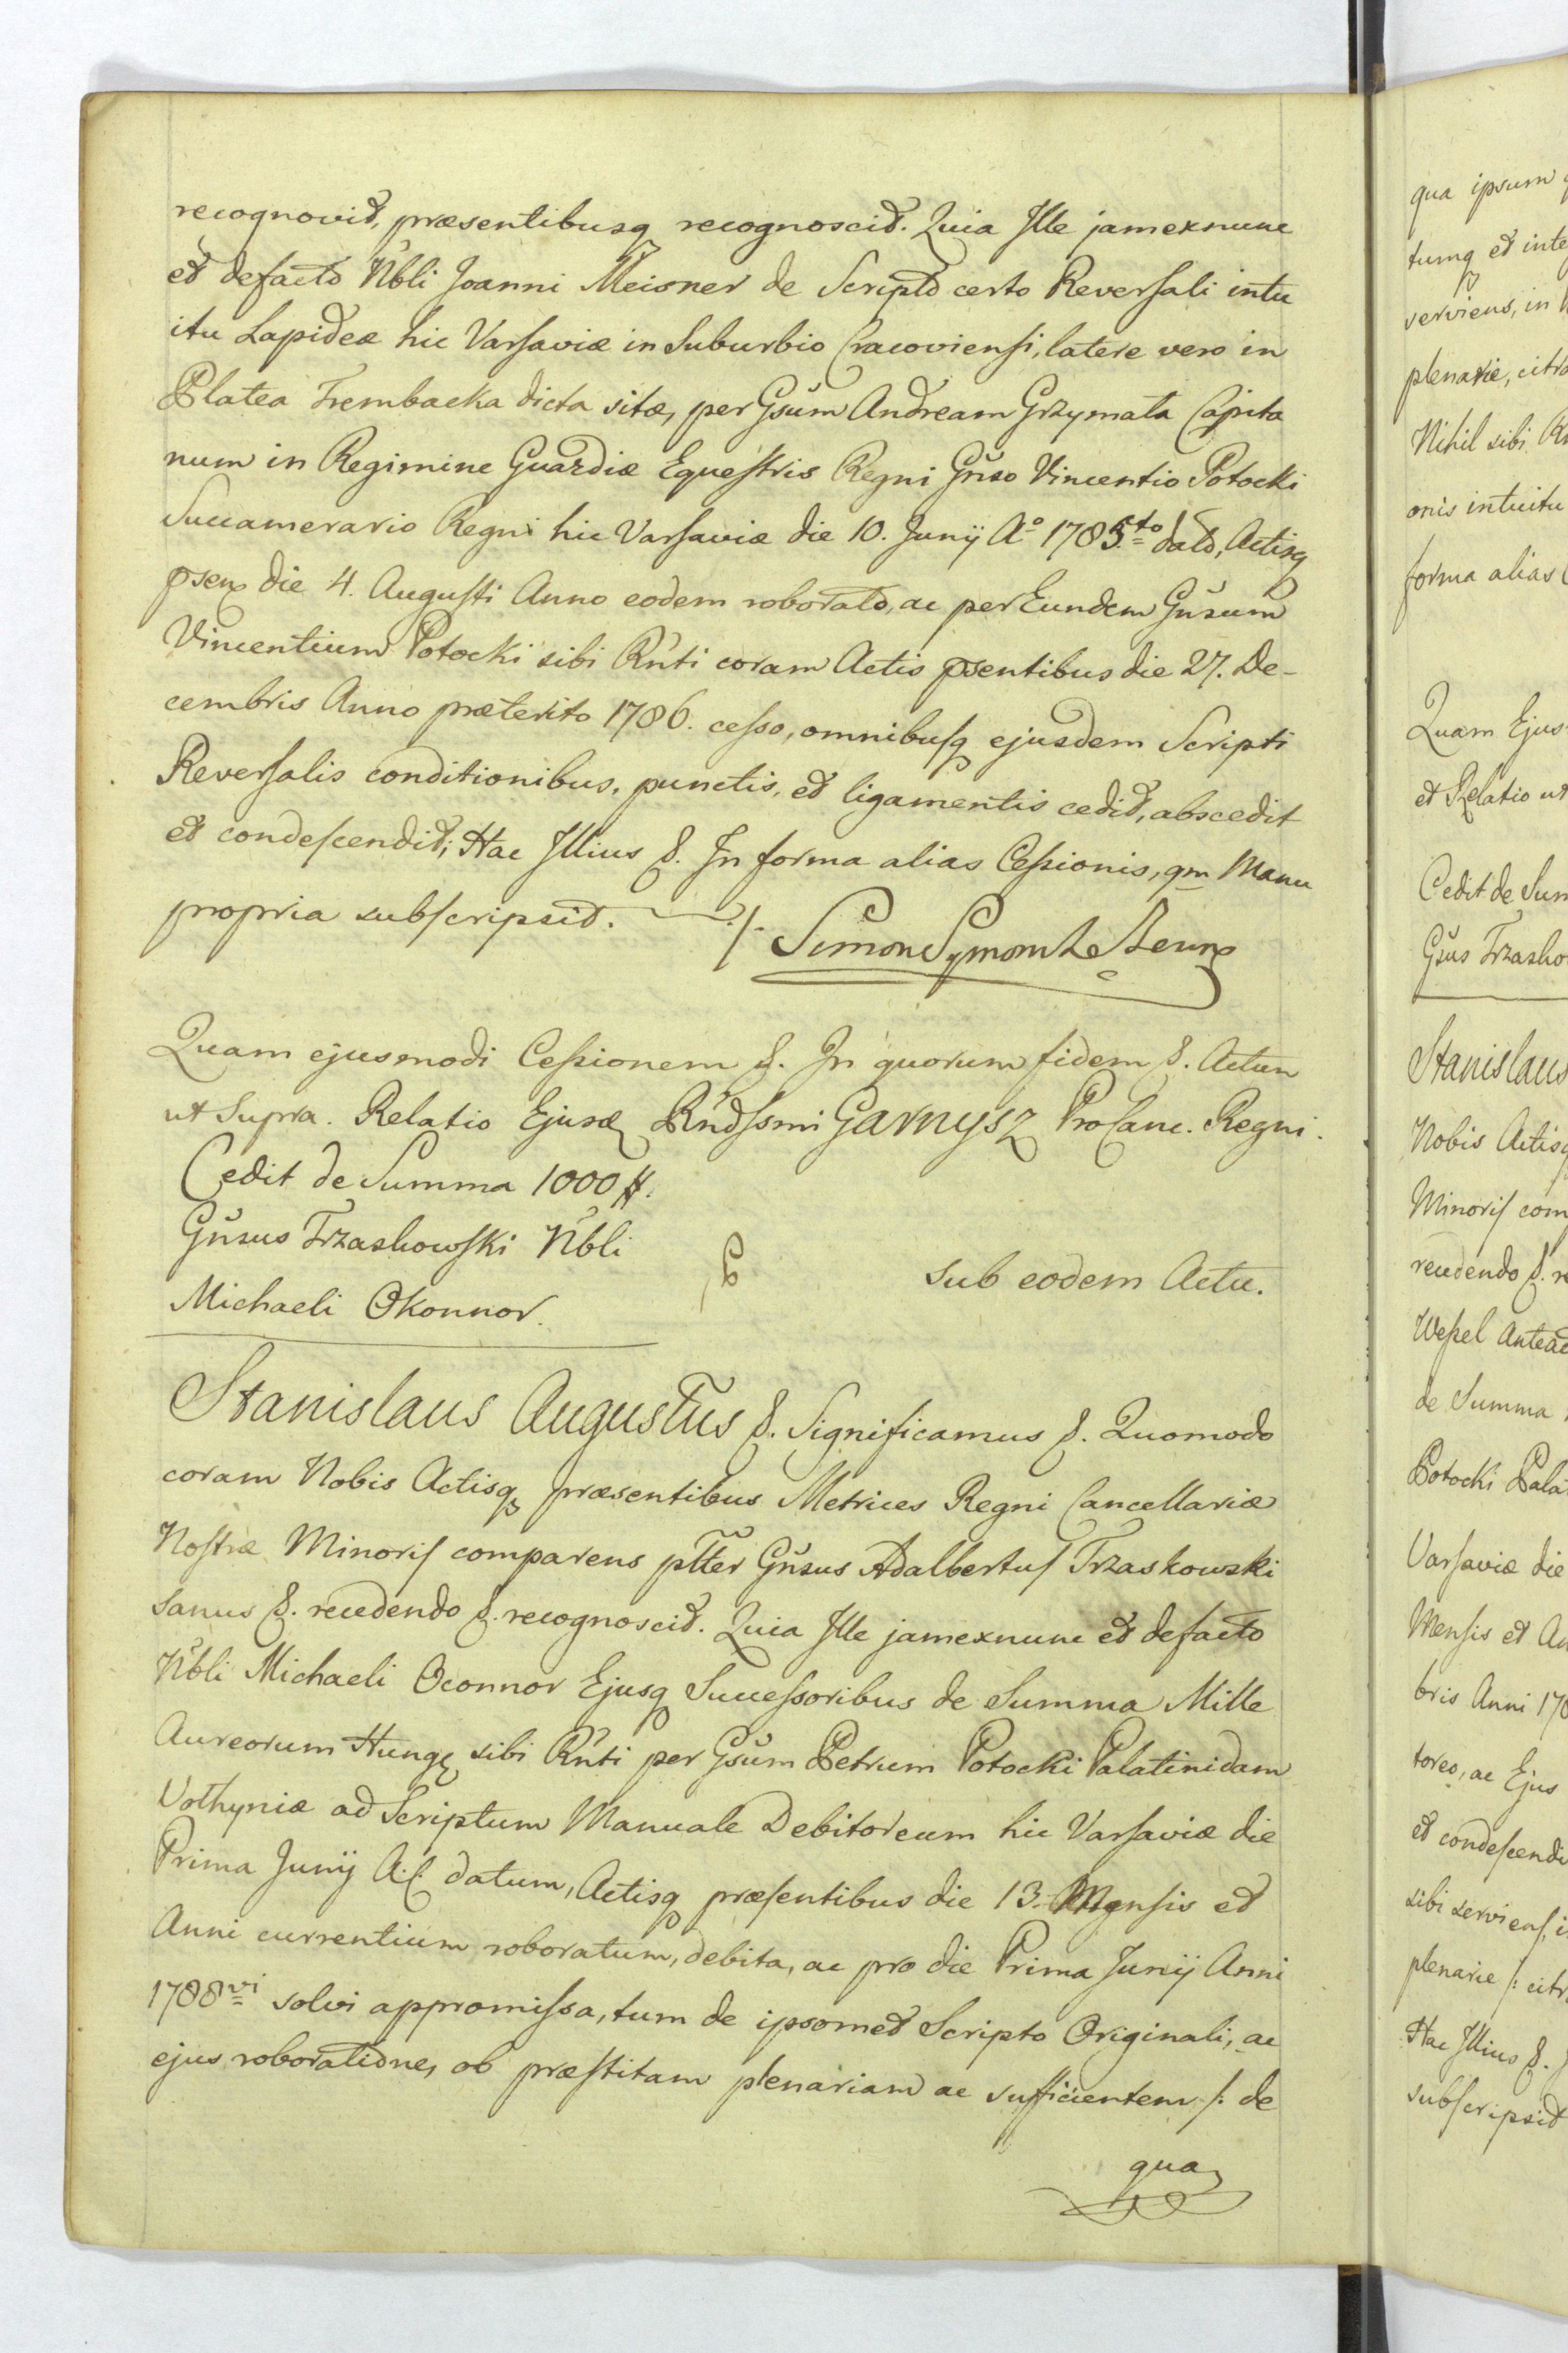 recognovit, præsentibusq recognoscit. Quia Ille jamexnunc
et defacto Nbli Joanni Meisner de Scripto certo Reversali intu
itu Lapideæ hic Varsaviæ in Suburbio Cracoviensi, latere vero in
Platea Trembacka dicta sitæ, per Gsum Andream Grzymała Capita
num in Regimine Guardiæ Equestris Regni Gnso Vincentio Potocki
Succamerario Regni hic Varsaviæ die 10. Junÿ Aº 1785to dato, Actisq
psen die 4. Augusti Anno eodem roborato, ac per Eundem Gnsum
Vincentium Potocki sibi Rnti coram Actis psentibus die 27. De-
cembris Anno præterito 1786. cesso, omnibusq ejusdem Scripti
Reversalis conditionibus, punctis, et ligamentis cedit, abscedit
et condescendit; Hac Illius &. In forma alias Cessionis, qm Manu
propria subscripsit. Simon Symon
Quam ejusmodi Cessionem &. In quorum fidem &. Actum
ut Supra. Relatio Ejusd Rndssmi Garnysz ProCanc. Regni.
Cedit de Summa 1000 #.
Gnsus Trzaskowski Nbli
Michaeli Okonnor.
sub eodem Actu.
Stanislaus Augustus &. Significamus &. Quomodo
coram Nobis Actisq præsentibus Metrices Regni Cancellariæ
Nostræ Minoris comparens pltter Gnsus Adalbertus Trzaskowski
sanus &. recedendo &. recognoscit. Quia Ille jamexnunc et defacto
Nbli Michaeli Oconnor Ejusq Successoribus de Summa Mille
Aureorum Hung sibi Rnti per Gsum Petrum Potocki Palatinidam
Volhyniæ ad Scriptum Manuale Debitoreum hic Varsaviæ die
Prima Junÿ A.C. datum, Actisq præsentibus die 13. Mensis et
Anni currentium roboratum, debita, ac pro die Prima Junÿ Anni
1788vi solvi appromissa, tum de ipsomet Scripto Originali, ac
ejus roboratione, ob præstitam plenariam ac sufficientem /: de
qua
qua ipsum
tumq et inte
serviens, in
plenarie, citra
Nihil sibi
onis intuitu
forma alias
Quam Ejus
et Relatio ut
Cedit de Sum
Gsus Trzasko
Stanislaus
Nobis Actisq
Minoris com
recedendo &. r
Wessel Antea
de Summa
Potocki Pala
Varsaviæ die
Mensis et An
bris Anni 178
toreo, ac Ejus
et condescendi
sibi serviens, i
plenarie /: citr
Hac Illius &.
subscripsit